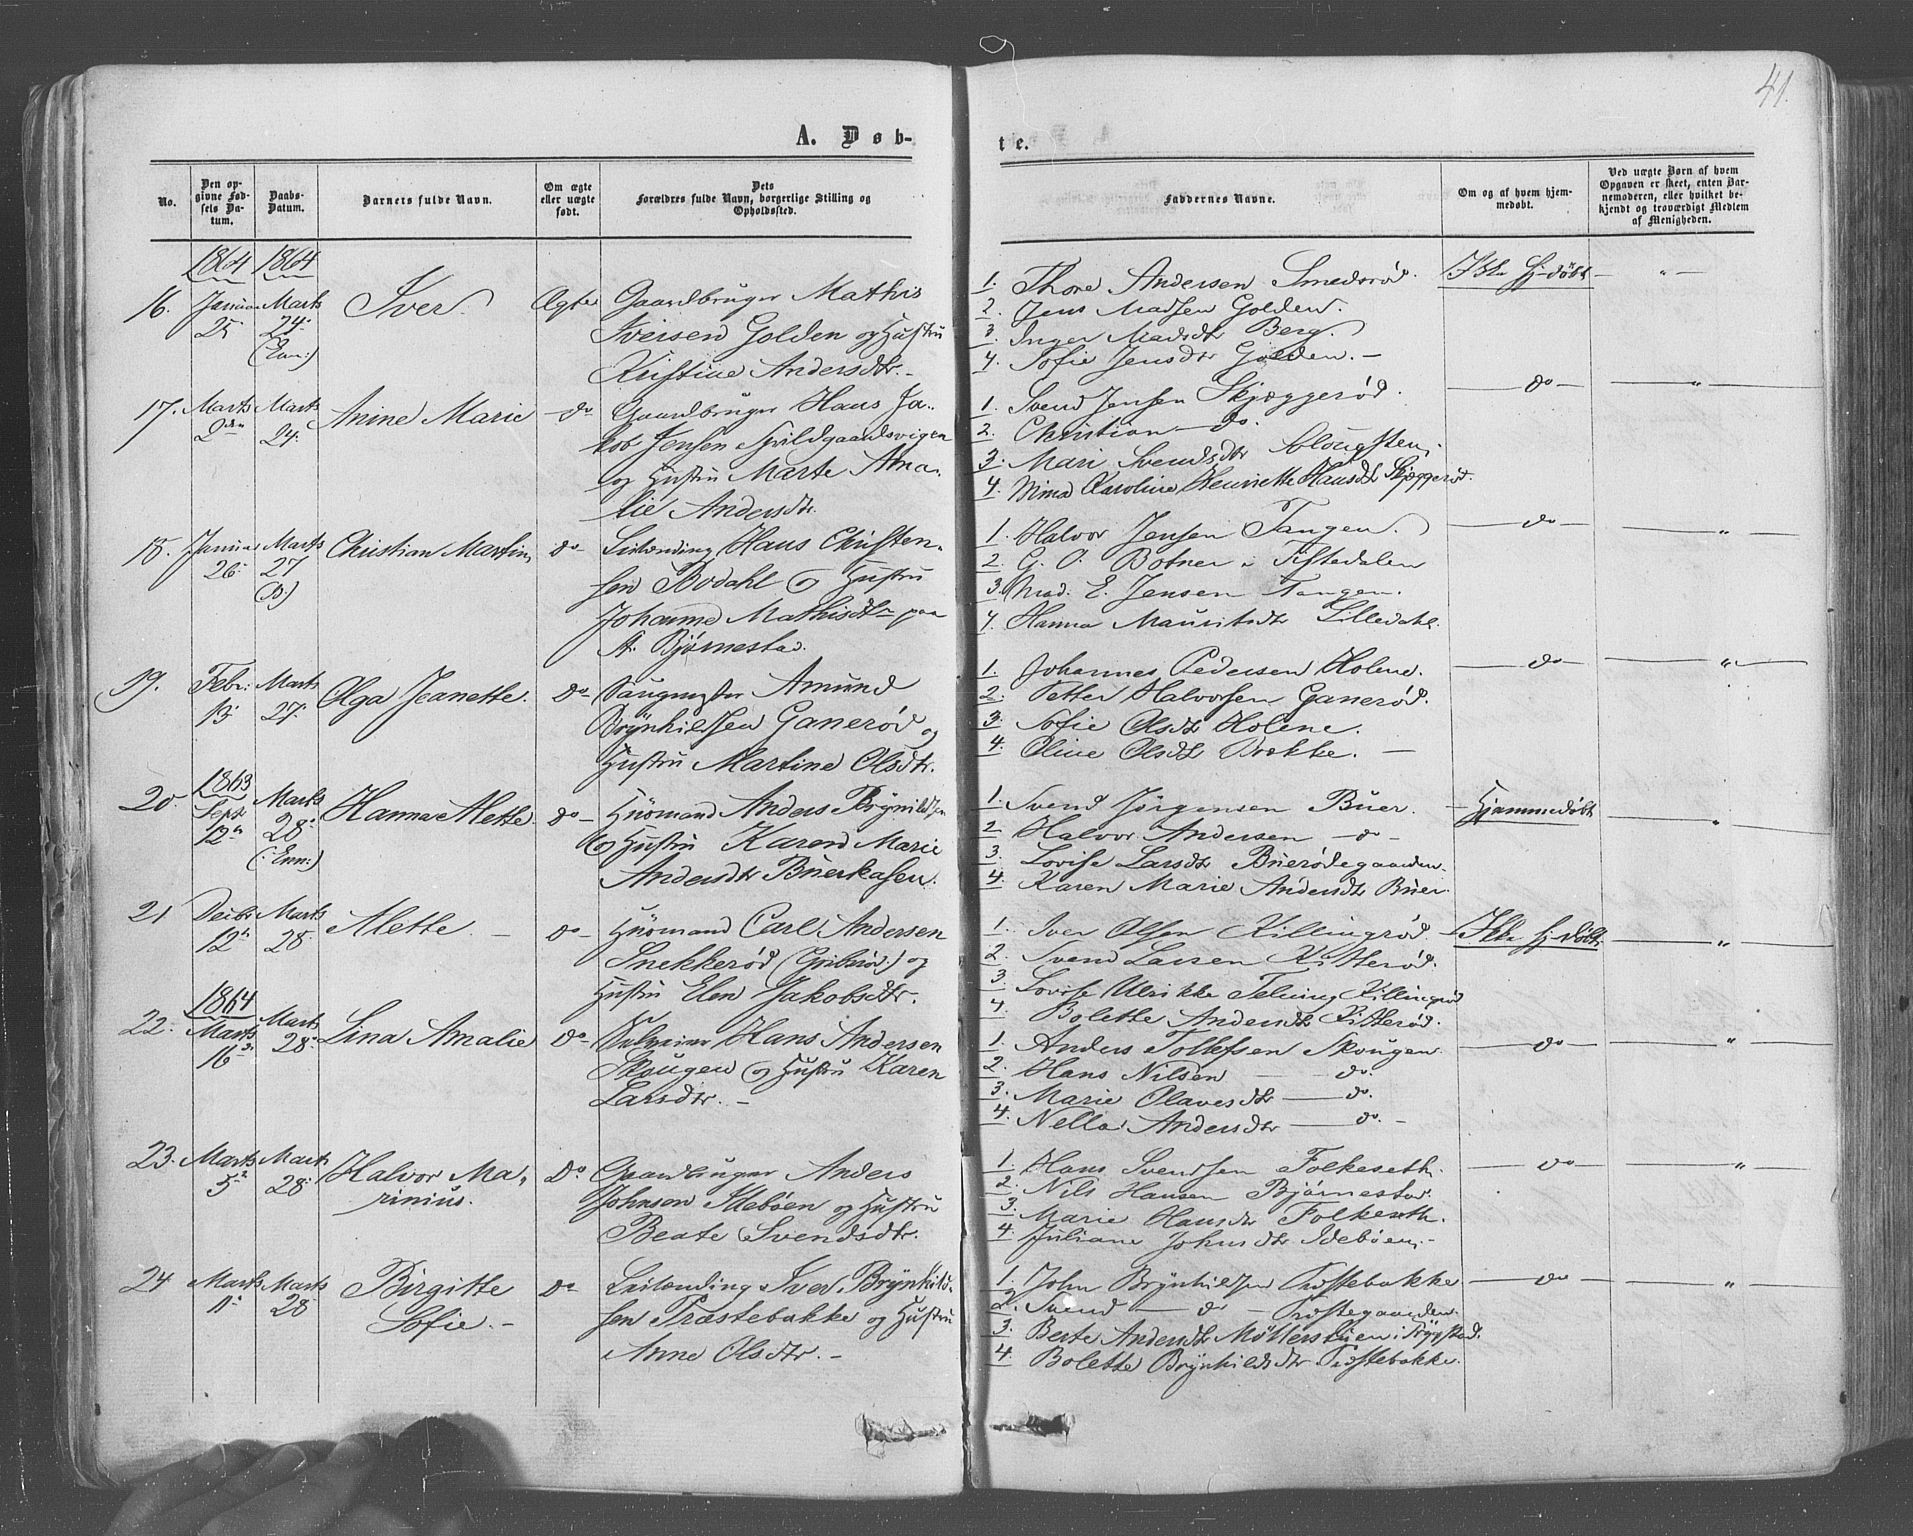 41.
A. Døb-
te.
No.
Den op-
givne Fød-
sels Da-
tum.
Daabs-
Datum.
Barnets fulde Navn.
Om ægte
eller uægte
født.
Dets
Forældres fulde Navn, borgerlige Stilling og
Opholdssted.
Faddernes Navne.
Om og af hvem hjem-
medøbt.
Ved uægte Børn af hvem
Opgaven er skeet, enten Bar-
nemoderen, eller hvilket be-
kjendt og troværdigt Medlem
af Menigheden.
1864 1864
16. Januar 25 Marts 24 (Enn:) Iver Ægte
Gaardbruger Mathis
Iversen Golden og Hustru
Kristine Andersdtr. –
1. Thore Andersen Smedsrød.
2. Jens Madsen Golden.
3. Inger Madsdtr Berg.
4. Sofie Jensdtr Golden. –
Ikke Hj-døbt – " –
17. Marts 2den Marts 24. Anine Marie – do
Gaardbruger Hans Ja-
kob Jensen
og Hustru Marte Ama-
lie Andersdtr.
1. Svend Jensen Skjæggerød.
2. Christian – do.
3. Mari Svendsdtr
4. Karoline Henriette Hansdtr Skjæggerød.
– do – "
18. Januar 26. Marts 27 Christian Martin, do
Leilænding Hans Christen-
sen Bodahl og Hustru
Johanne Mathisdtr paa
Bjørnestad.
1. Halvor Jensen Tangen.
2. G. O. Botner i Tistedalen
3. Mad. E. Jensen Tangen.
4. Hanna Mauritsdtr Lilledahl.
– do – " –
19. Febr: 13 Marts 27. Olga Jeanette. do
Saugmester Amund
Brynhilsen Ganerød og
Hustru Martine Olsdtr.
1. Johannes Pedersen Holene.
2. Petter Halvorsen Ganerød.
3. Sofie Olsdtr Holene.
4. Oline Olsdtr Brække. –
– do – " –
20. 1863 Sept 12te Marts 28 (: Enn:) Hanna Alette. do –
Husmand Anders Brynildsen
og Hustru Karen Marie
Andersdtr Buerkasen.
1. Svend Jørgensen Buer.
2. Halvor Andersen – do –
3. Lovise Larsdtr Buerødegaarden.
4. Karen Marie Andersdtr Buer.
– Hjemmedøbt – " –
21 Decbr 12te Marts 28. Alette. – do –
Husmand Carl Andersen
Snekkerød og
Hustru Elen Jakobsdtr.
1. Iver Olsen Killingrød.
2. Svend Larsen Kitterød.
3. Lovise Ulrikke Killingrød
4. Bolette Andersdtr Kitterød.
Ikke Hj-døbt – " –
1864
22. Marts 16 Marts 28 Lina Amalie do
Selveier Hans Andersen
Skougen og Hustru Karen
Larsdtr. –
1. Anders Tollefsen Skougen.
2. Hans Nilsen – do.
3. Marie Olavesdtr – do.
4. Nella Andersdtr – do. –
– do – " –
23. Marts 5 Marts 28. Halvor Ma-
rinius. do
Gaardbruger Anders
Johnsen Idebøen og Hustru
Beate Svendsdtr.
1. Hans Svendsen Folkeseth.
2. Nils Hansen Bjørnestad.
3. Marie Hansdtr Folkeseth.
4. Juliane Johnsdtr Idebøen. –
– do – "
24 Marts Marts 28 Birgitte
Sofie. – do
Leilænding Iver Brynhilds-
sen Præstebakke og Hustru
Anne Olsdtr. –
1. John Brynhildsen Præstebakke
2. Svend – do – Præstegaarden.
3. Berte Andersdtr
4. Bolette Brynhildsdtr Præstebakke.
– do – "